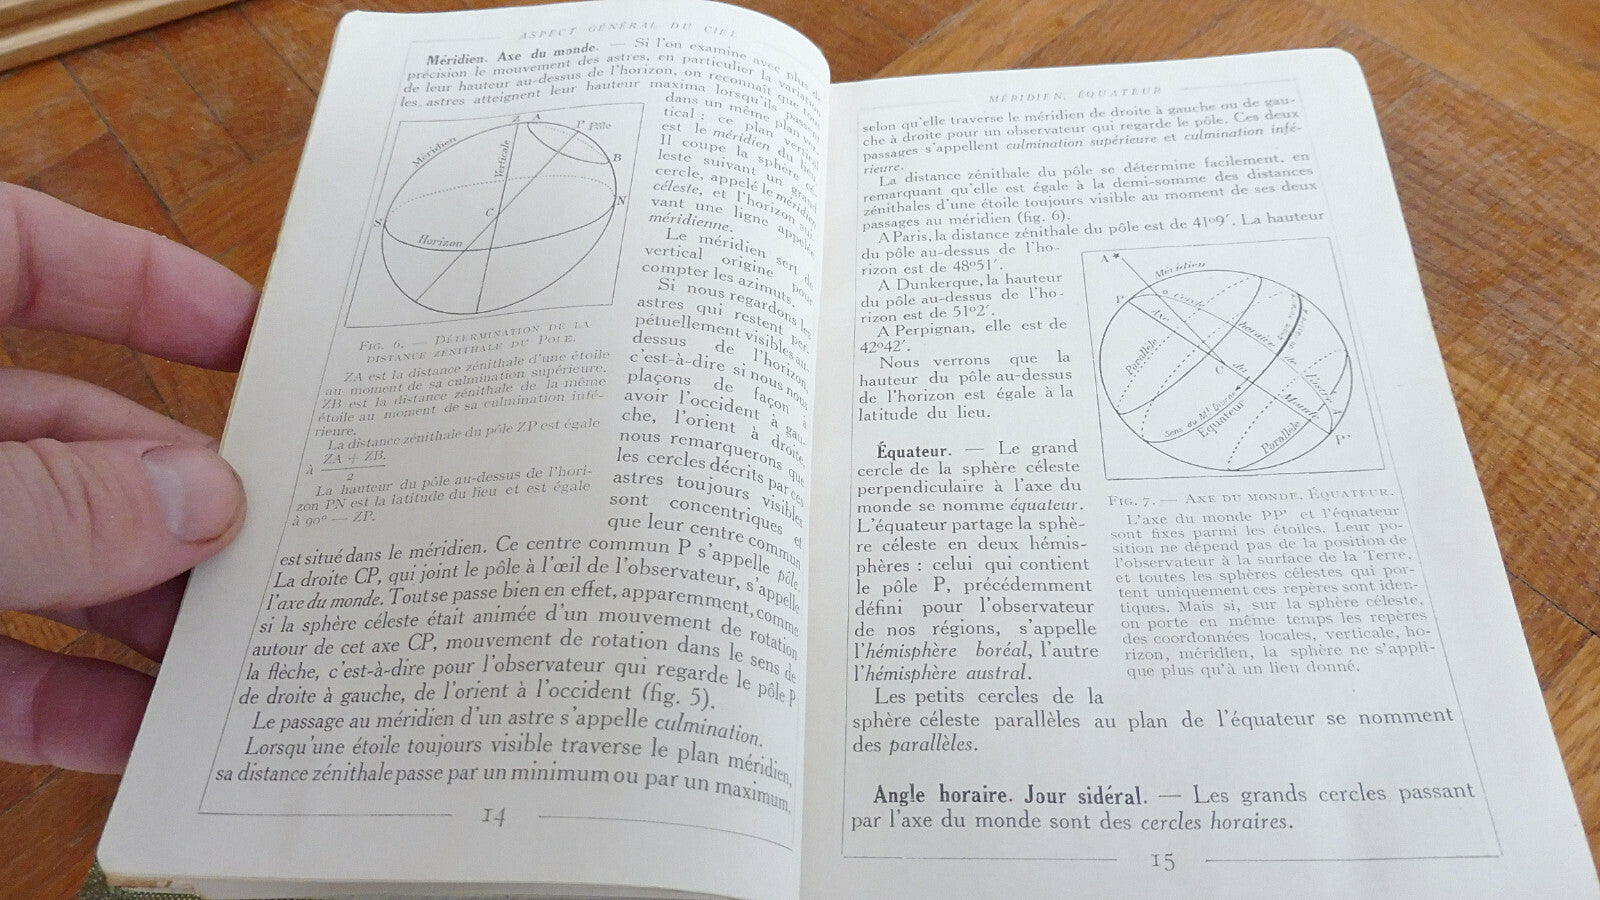 ASPECT GÉNÉRAL DU CIEL
Méridien. Axe du monde. — Si l'on examine avec plus de
précision le mouvement des astres, en particulier la variation
de leur hauteur au-dessus de l'horizon, on reconnaît que tous
les astres atteignent leur hauteur maxima lorsqu'ils passent
dans un même plan ver-
tical : ce plan vertical
est le méridien du lieu.
Il coupe la sphère cé-
leste suivant un grand
cercle, appelé le méridien
céleste, et l'horizon sui-
vant une ligne appelée
méridienne.
Le méridien sert de
vertical origine pour
compter les azimuts.
Si nous regardons les
astres qui restent per-
pétuellement visibles au-
dessus de l'horizon,
c'est-à-dire si nous nous
plaçons de façon à
avoir l'occident à gau-
che, l'orient à droite,
nous remarquerons que
les cercles décrits par ces
astres toujours visibles
sont concentriques et
que leur centre commun
Z A P Pôle
Méridien
Verticale
B
N
S
C
Horizon
FIG. 6. — DÉTERMINATION DE LA
DISTANCE ZÉNITHALE DU PÔLE.
ZA est la distance zénithale d'une étoile
au moment de sa culmination supérieure.
ZB est la distance zénithale de la même
étoile au moment de sa culmination infé-
rieure.
La distance zénithale du pôle ZP est égale
à ZA + ZB.
2
La hauteur du pôle au-dessus de l'hori-
zon PN est la latitude du lieu et est égale
à 90° — ZP.
est situé dans le méridien. Ce centre commun P s'appelle pôle.
La droite CP, qui joint le pôle à l'œil de l'observateur, s'appelle
l'axe du monde. Tout se passe bien en effet, apparemment, comme
si la sphère céleste était animée d'un mouvement de rotation
autour de cet axe CP, mouvement de rotation dans le sens de
la flèche, c'est-à-dire pour l'observateur qui regarde le pôle P
de droite à gauche, de l'orient à l'occident (fig. 5).
Le passage au méridien d'un astre s'appelle culmination.
Lorsqu'une étoile toujours visible traverse le plan méridien,
sa distance zénithale passe par un minimum ou par un maximum,
14
MÉRIDIEN, ÉQUATEUR
selon qu'elle traverse le méridien de droite à gauche ou de gau-
che à droite pour un observateur qui regarde le pôle. Ces deux
passages s'appellent culmination supérieure et culmination infé-
rieure.
La distance zénithale du pôle se détermine facilement, en
remarquant qu'elle est égale à la demi-somme des distances
zénithales d'une étoile toujours visible au moment de ses deux
passages au méridien (fig. 6).
A Paris, la distance zénithale du pôle est de 41°9′. La hauteur
du pôle au-dessus de l'ho-
rizon est de 48°51′.
A Dunkerque, la hauteur
du pôle au-dessus de l'ho-
rizon est de 51°2′.
A Perpignan, elle est de
42°42′.
Nous verrons que la
hauteur du pôle au-dessus
de l'horizon est égale à la
latitude du lieu.
Équateur. — Le grand
cercle de la sphère céleste
perpendiculaire à l'axe du
monde se nomme équateur.
L'équateur partage la sphè-
re céleste en deux hémis-
phères : celui qui contient
le pôle P, précédemment
défini pour l'observateur
de nos régions, s'appelle
l'hémisphère boréal, l'autre
l'hémisphère austral.
A
Méridien
P
Cercle horaire de l'astre A
Axe du Monde
Parallèle
C
Sens du Mt Diurne
Équateur
Parallèle
P'
FIG. 7. — AXE DU MONDE. ÉQUATEUR.
L'axe du monde PP' et l'équateur
sont fixes parmi les étoiles. Leur po-
sition ne dépend pas de la position de
l'observateur à la surface de la Terre,
et toutes les sphères célestes qui por-
tent uniquement ces repères sont iden-
tiques. Mais si, sur la sphère céleste,
on porte en même temps les repères
des coordonnées locales, verticale, ho-
rizon, méridien, la sphère ne s'appli-
que plus qu'à un lieu donné.
Les petits cercles de la
sphère céleste parallèles au plan de l'équateur se nomment
des parallèles.
Angle horaire. Jour sidéral. — Les grands cercles passant
par l'axe du monde sont des cercles horaires.
15